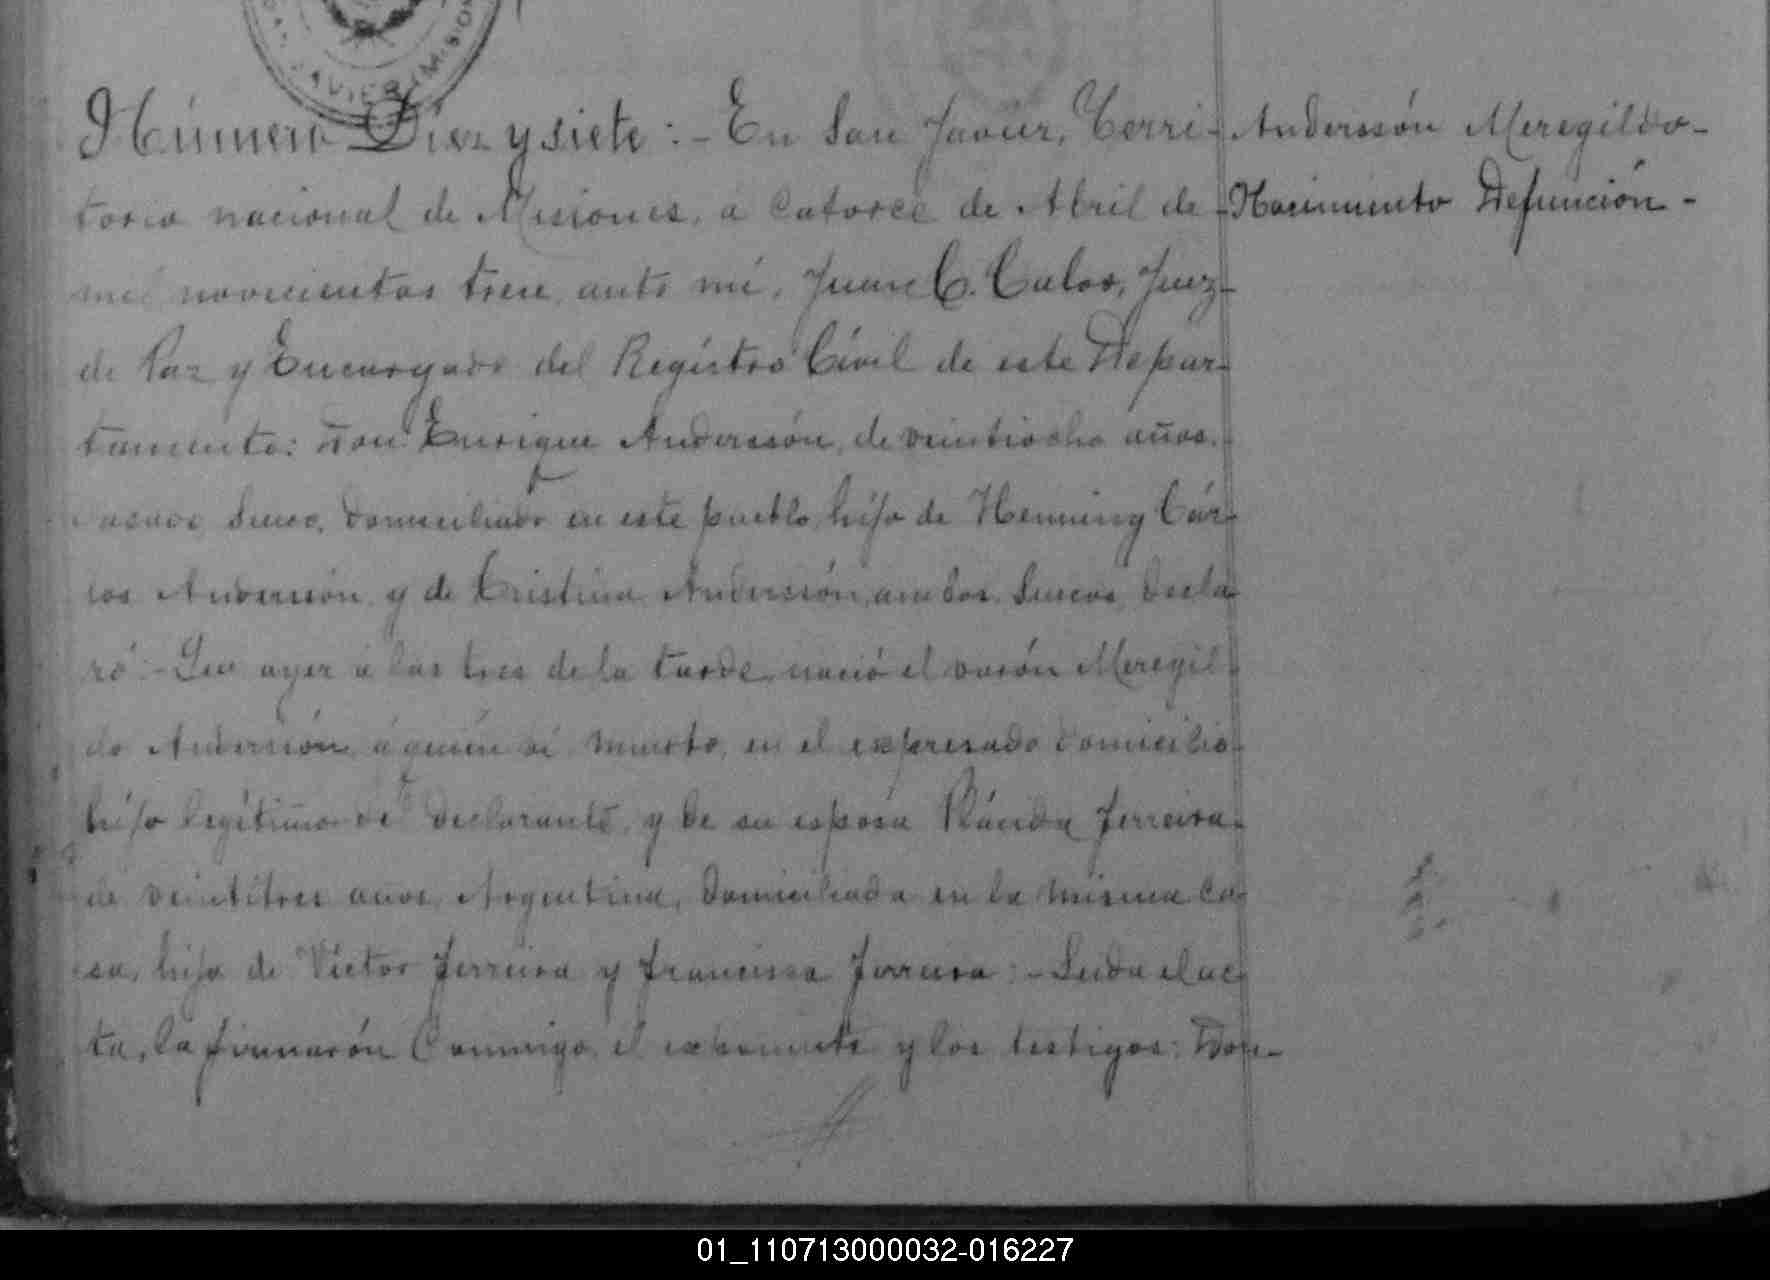 JAVIER (MISION
Número Diez y siete : - En San Javier, Terri-
torio nacional de Misiones, a catorce de Abril de
mil novecientos trece, ante mí, Juan C. Calvo, Juez
de Paz y Encargado del Registro Civil de este Depar-
tamento: Don Enrique Anderssón, de veintiocho años,
casado, Sueco, domiciliado en este pueblo, hijo de Henning Cár-
los Anderssón y de Cristina Anderssón, ambos Suecos, decla-
ró: - Que ayer á las tres de la tarde, nació el varón Meregil-
do Anderssón, á quién ví muerto, en el expresado domicilio
hijo legítimo del declarante, y de su esposa Plánida Ferreira
de veintitres años, Argentina, domiciliada en la misma ca-
sa, hija de Víctor Ferreira y Francisca Ferreira: - Leida el ac-
ta, la firmarón Conmigo, el exponente y los testigos: Don-
Anderssón Meregildo-
Nacimiento Defunción-
01_110713000032-016227